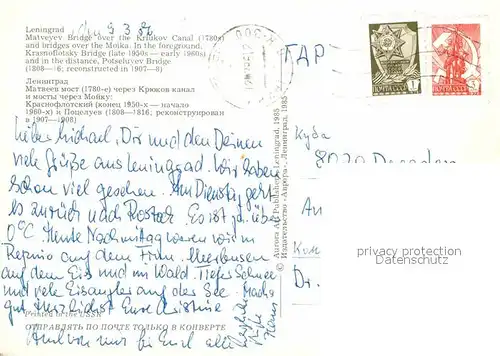 Leningrad
9 3 87
Matveyev Bridge over the Kriukov Canal (1780s)
and bridges over the Moika. In the foreground,
Krasnoflotsky Bridge (late 1950s — early 1960s)
and in the distance, Potseluyev Bridge
(1808—16; reconstructed in 1907—8)
Ленинград
Матвеев мост (1780-е) через Крюков канал
и мосты через Мойку:
Краснофлотский (конец 1950-х — начало
1960-х) и Поцелуев (1808—1816; реконструирован
в 1907—1908)
Lieber Michael, Dir und den Deinen
viele Grüße aus Leningrad. Wir haben
schon viel gesehen. Am Dienstag geht
es zurück nach Rostock. Es ist ja über
0°C. Heute Nachmittag waren wir in
Repino auf dem Finn. Meerbusen
auf dem Eis und im Wald. Tiefer Schnee
und viele Eisangler auf der See. Machs
gut Herzlichst Eure Christine
Printed in the USSR
ОТПРАВЛЯТЬ ПО ПОЧТЕ ТОЛЬКО В КОНВЕРТЕ
Auch von mir bei Euch alles
Hans
© Aurora Art Publishers, Leningrad, 1985
Издательство «Аврора», Ленинград, 1985
ГДР
ПОЧТА СССР 1
ПОЧТА СССР
Куда
8020 Dresden
An
Ком
Dr.
privacy protection
Datenschutz